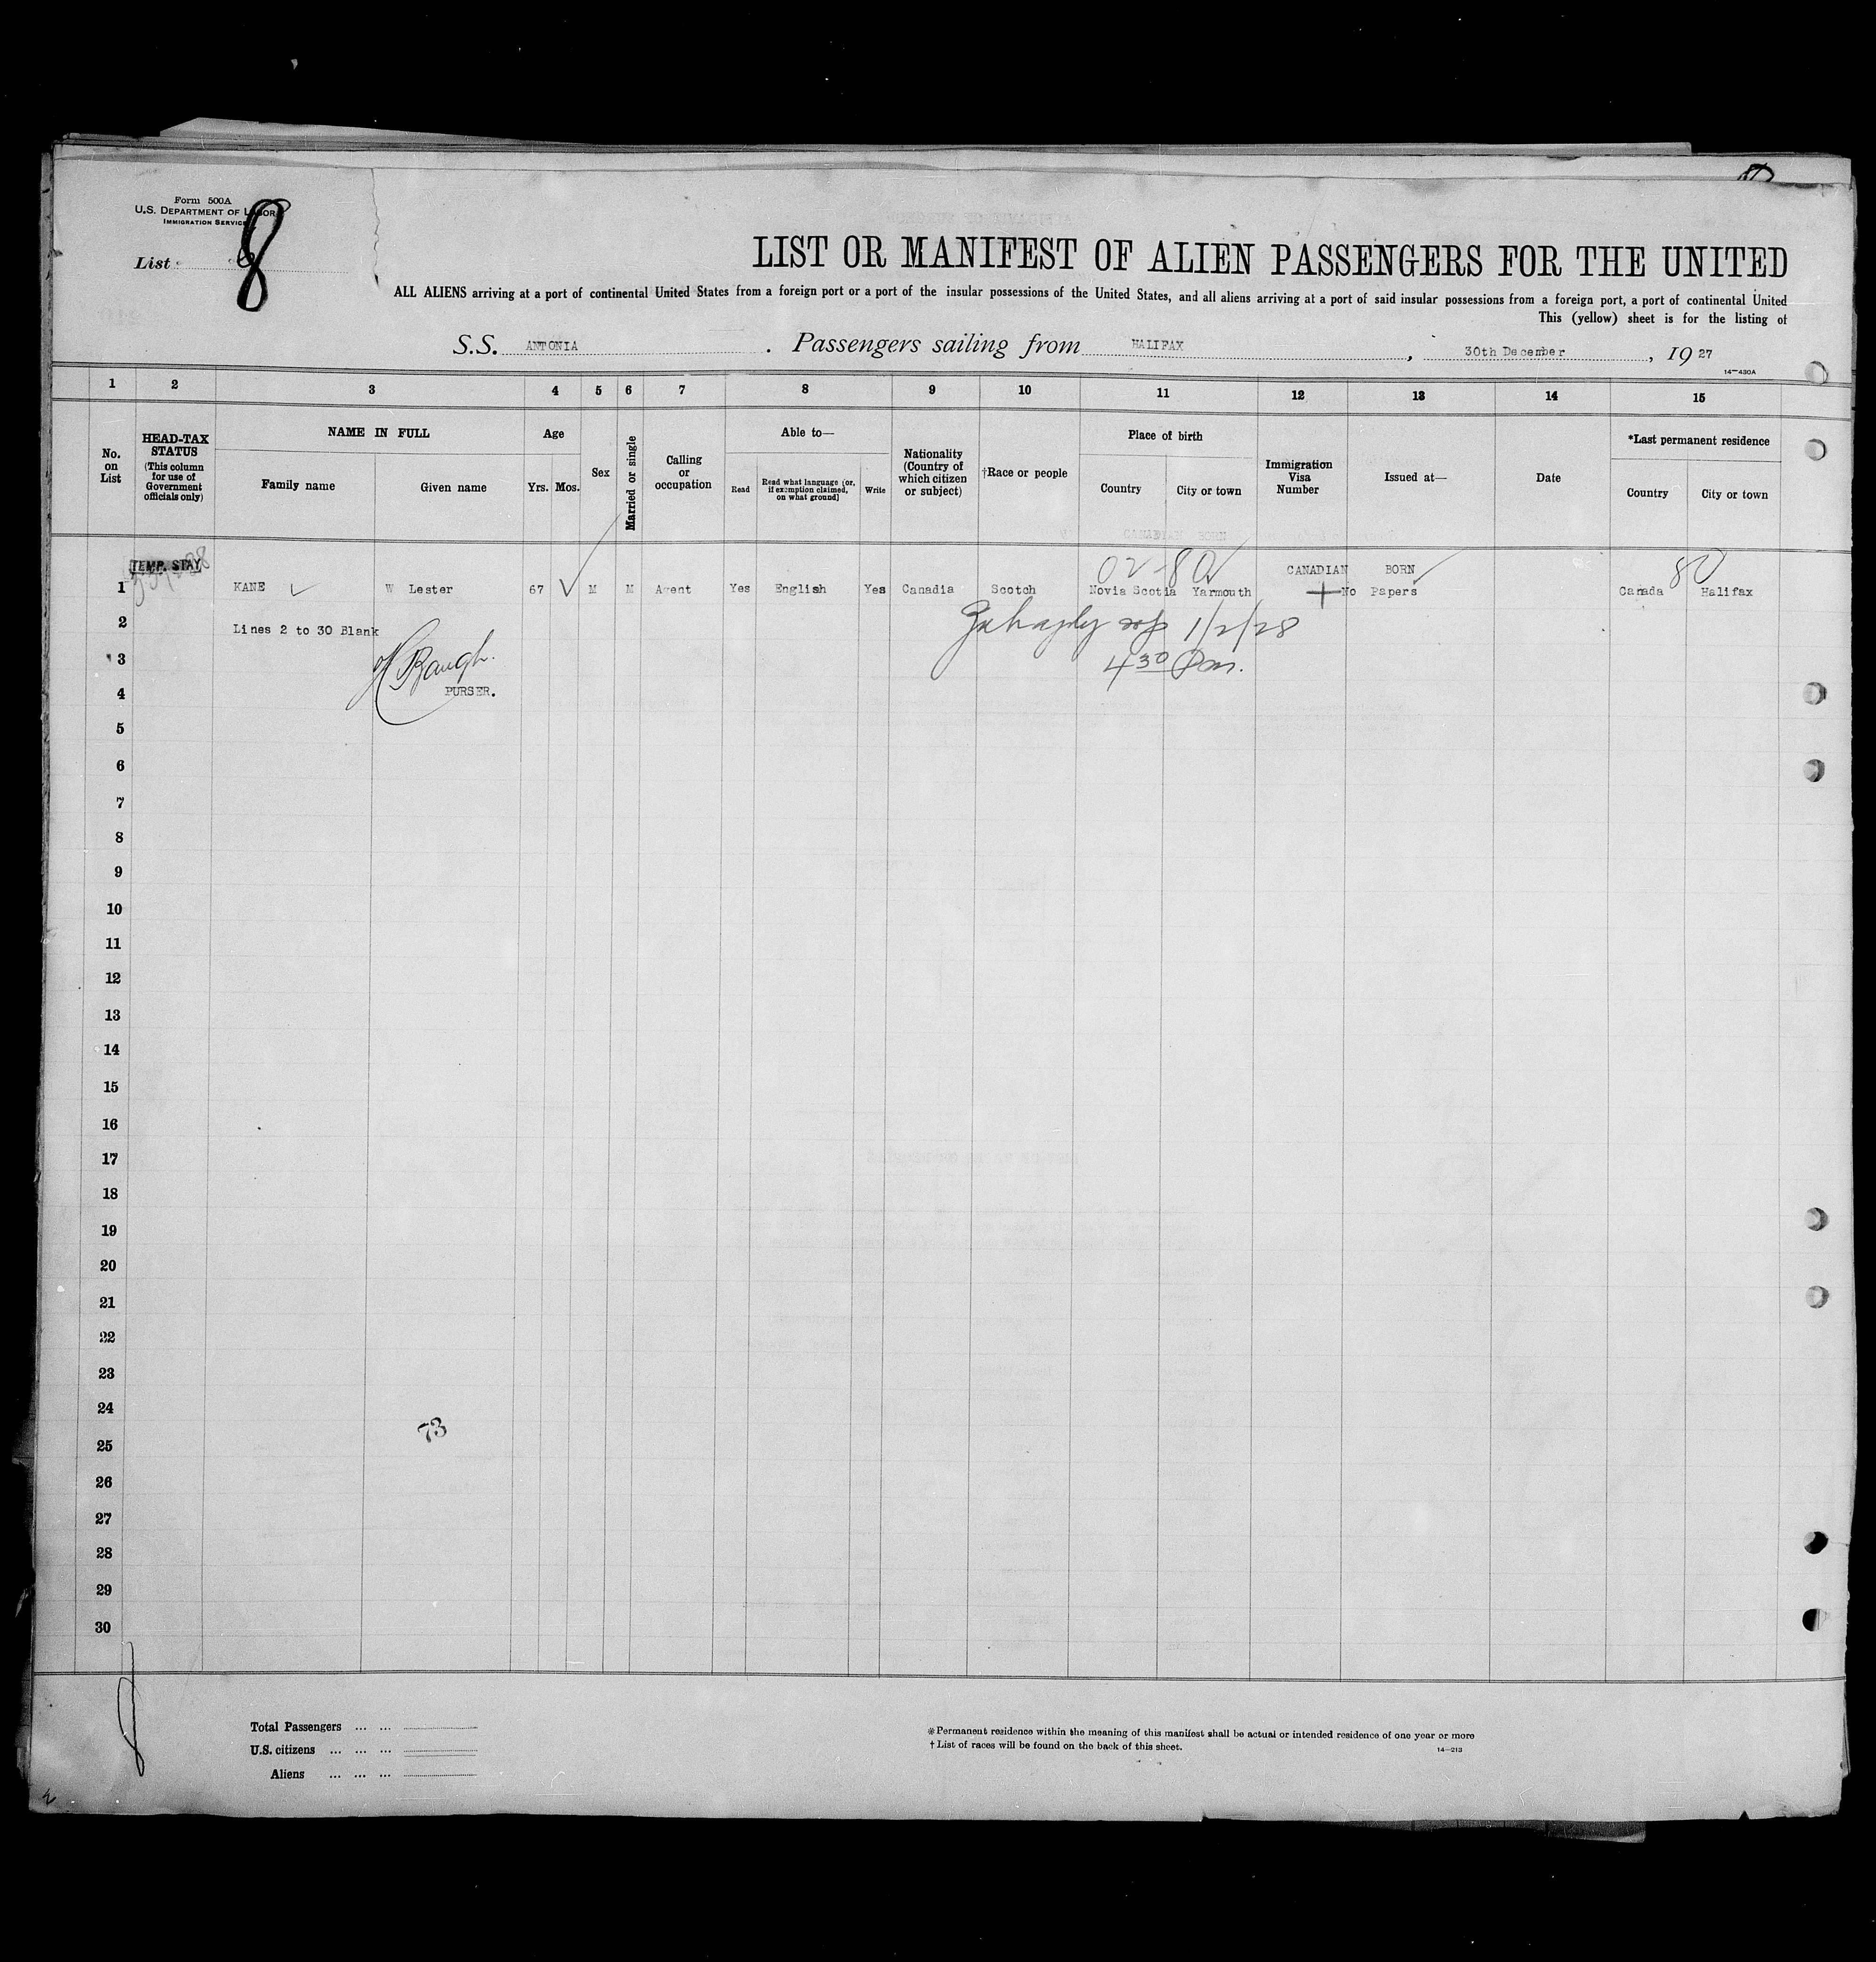 Form 500A
U.S. DEPARTMENT OF LABOR
IMMIGRATION SERVICE
List 8
LIST OR MANIFEST OF ALIEN PASSENGERS FOR THE UNITED
ALL ALIENS arriving at a port of continental United States from a foreign port or a port of the insular possessions of the United States, and all aliens arriving at a port of said insular possessions from a foreign port, a port of continental United
This (yellow) sheet is for the listing of
S.S. ANTONIA . Passengers sailing from HALIFAX , 30th December , 19 27
14—430A
1 2 3 4 5 6 7 8 9 10 11 12 13 14 15
No. on List
HEAD-TAX STATUS (This column for use of Government officials only)
NAME IN FULL
Family name Given name
Age
Yrs. Mos.
Sex
Married or single
Calling or occupation
Able to—
Read Read what language [or, if exemption claimed, on what ground] Write
Nationality (Country of which citizen or subject)
†Race or people
Place of birth
Country City or town
Immigration Visa Number
Issued at—
Date
*Last permanent residence
Country City or town
TEMP. STAY 02-80 CANADIAN BORN 80
1 KANE W Lester 67 M M Agent Yes English Yes Canadia Scotch Novia Scotia Yarmouth No Papers Canada Halifax
2 Lines 2 to 30 Blank 1/2/28
3 Baugh. 4 30 Pm.
4 PURSER.
5
6
7
8
9
10
11
12
13
14
15
16
17
18
19
20
21
22
23
24
73
25
26
27
28
29
30
Total Passengers ... ...
U.S. citizens ... ... ...
Aliens ... ... ...
*Permanent residence within the meaning of this manifest shall be actual or intended residence of one year or more
†List of races will be found on the back of this sheet.
14—213